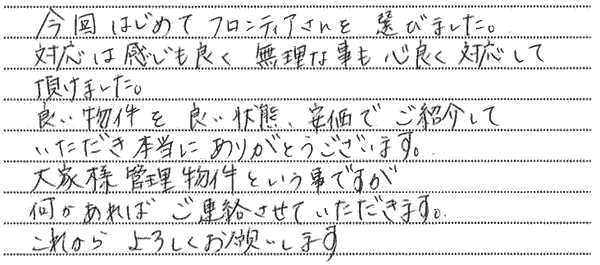 今回はじめてフロンティアさんを選びました。
対応は感じも良く無理な事も心良く対応して
頂けました。
良い物件を良い状態、安価でご紹介して
いただき本当にありがとうございます。
大家様管理物件という事ですが
何かあればご連絡させていただきます。
これからよろしくお願いします